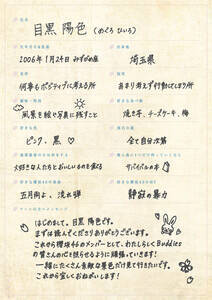 目黒 陽色 (めぐろ ひいろ)
2006年1月24日 みずがめ座
埼玉県
何事もポジティブに考える所
あまり考えず行動してしまう所
風景を絵や写真に残すこと
焼き芋、チーズケーキ、梅
ピンク、黒♡
全て自分次第
大好きな人たちとおいしいものを食べる
サバイバルのあ
五月雨よ、流れ弾
静寂の暴力
はじめまして。目黒 陽色です。
まずは読んでくださりありがとうございます。
これから櫻坂46のメンバーとして、わたしらしくBuddies
の皆さんの心と照らせるように頑張っていきます!
一緒にたくさん素敵な景色だけ見て行きたいです。
これから宜しくおねがいします!